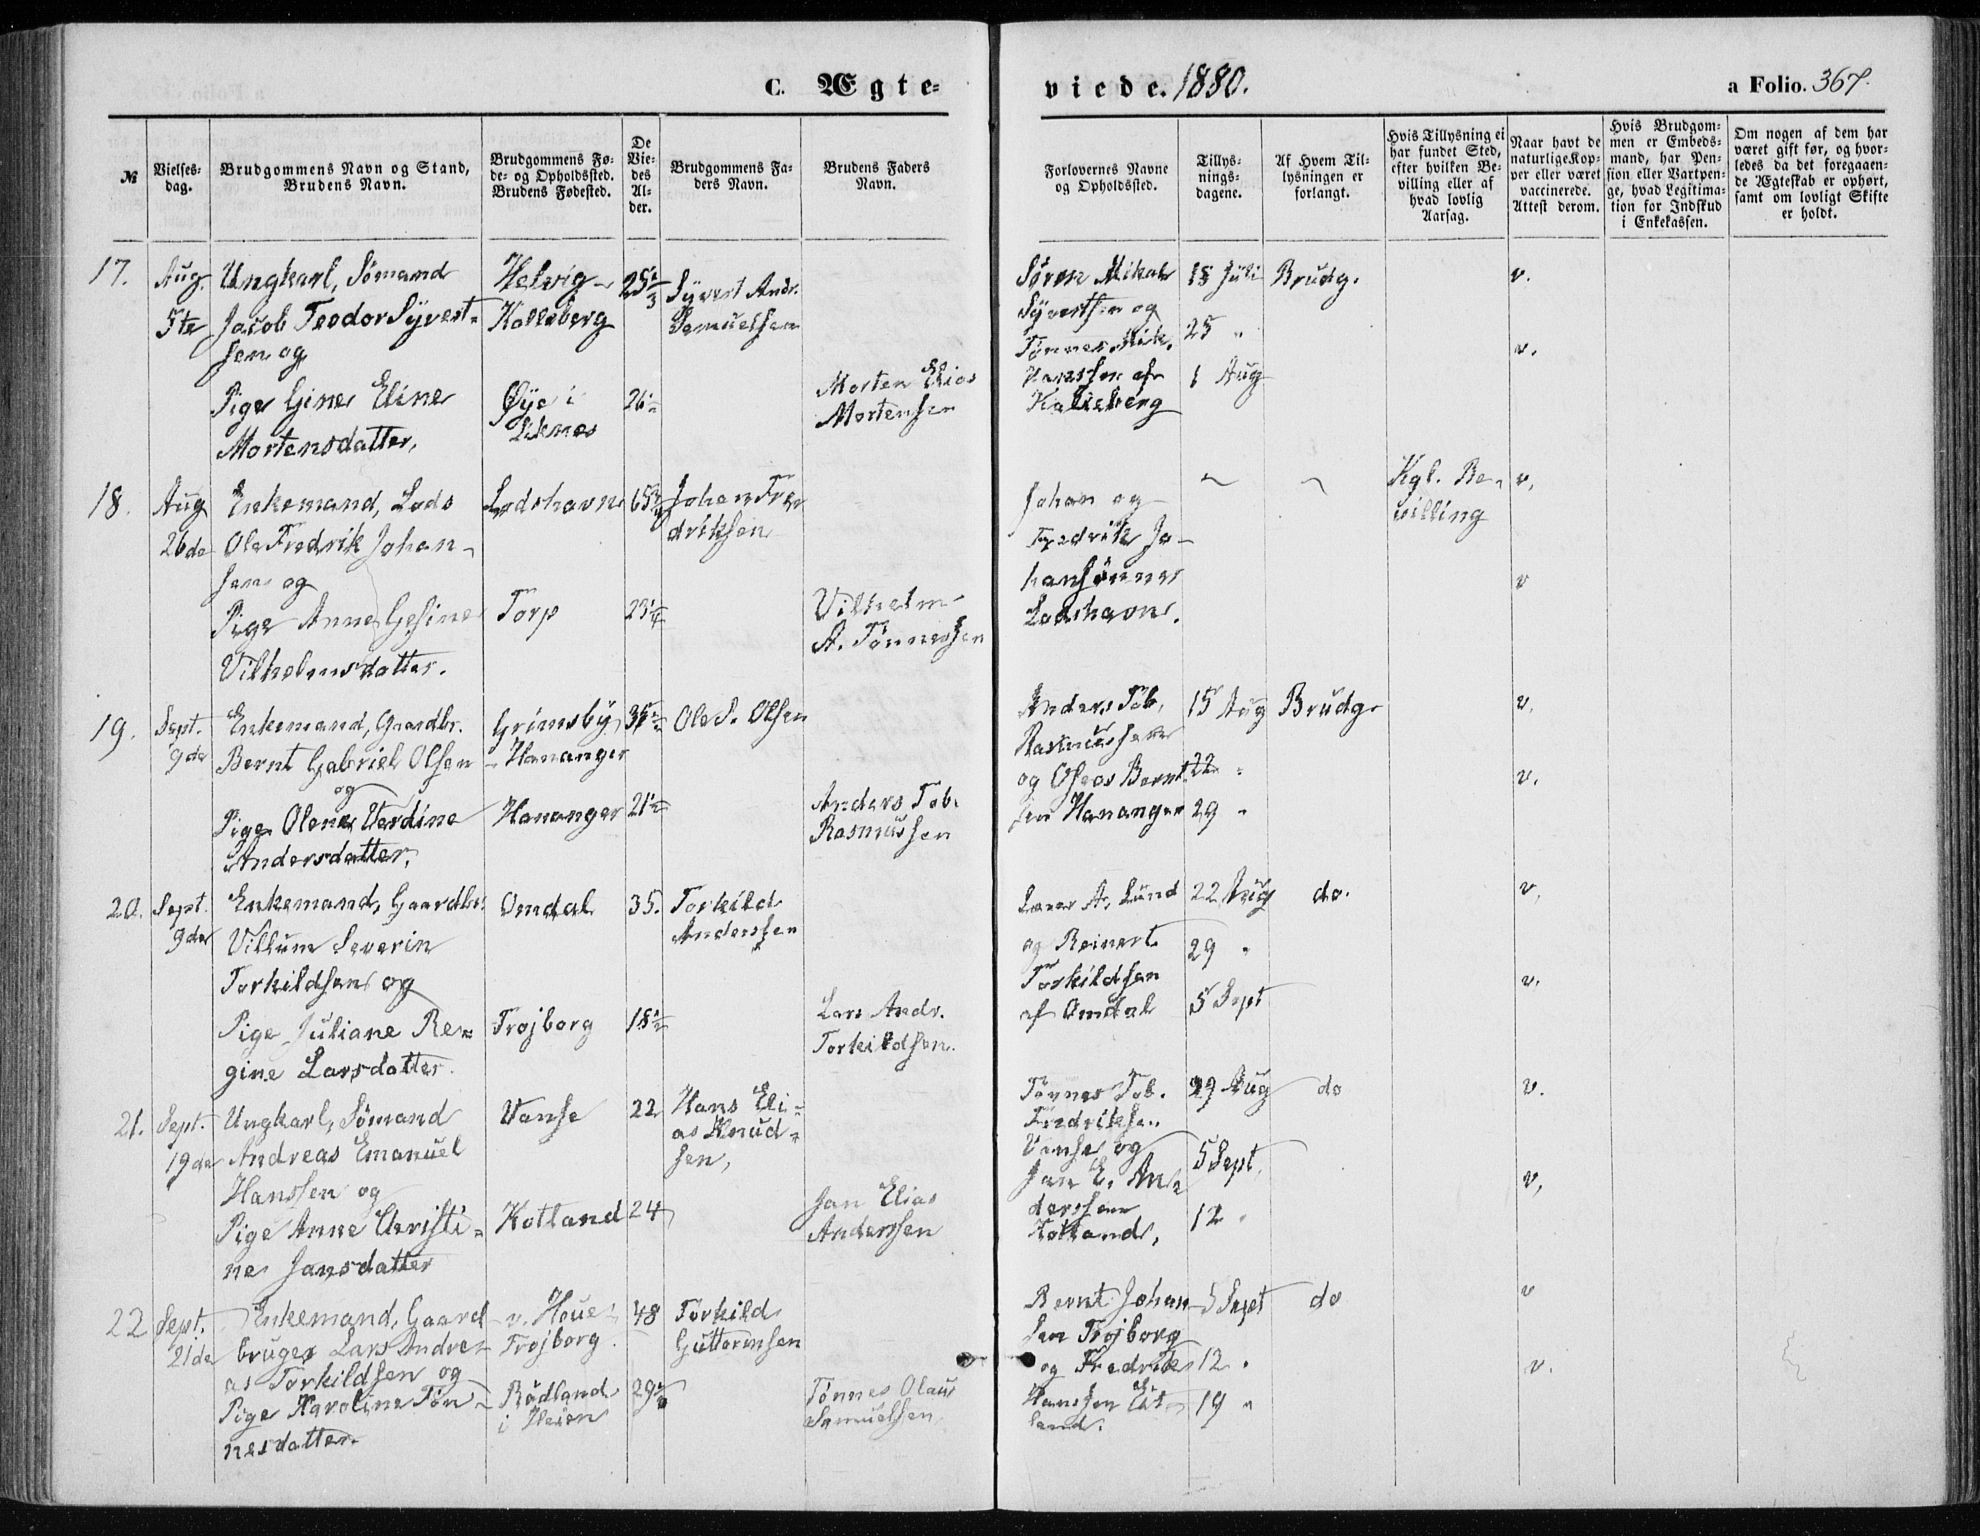 C. Ægte-
viede. 1880.
a Folio. 367.
№
Vielses-
dag.
Brudgommens Navn og Stand,
Brudens Navn.
Brudgommens Fø-
de- og Opholdssted.
Brudens Fødested.
De
Vie-
des
Al-
der.
Brudgommens Fa-
ders Navn.
Brudens Faders
Navn.
Forlovernes Navne
og Opholdssted.
Tillys-
nings-
dagene.
Af Hvem Til-
lysningen er
forlangt.
Hvis Tillysning ei
har fundet Sted,
efter hvilken Be-
villing eller af
hvad lovlig
Aarsag.
Naar havt de
naturlige Kop-
per eller været
vaccinerede.
Attest derom.
Hvis Brudgom-
men er Embeds-
mand, har Pen-
sion eller Vartpen-
ge, hvad Legitima-
tion for Indskud
i Enkekassen.
Om nogen af dem har
været gift før, og hvor-
ledes da det foregaaen-
de Ægteskab er ophørt,
samt om lovligt Skifte
er holdt.
17.
Aug.
5te
Ungkarl, Sømand
Jacob Teodor Syvert-
sen og
Pige Gine Eline
Mortensdatter,
Helvig-
Kalleberg
Øye i
Liknes
25
26
Syvert Andr.
Samuelsen
Morten Elias
Mortensen
Søren Mikal
Syvertsen og
Tønnes Mik.
Hanssen af
Kalleberg
18 Juli
25 "
1 Aug
Brudg.
v.
v.
18.
Aug
26de
Enkemand, Lods
Ole Fredrik Johan-
sen og
Pige Anne Gesine
Vilhelmsdatter.
Lodshavn
Torp
65
Johan Fre
driksen
Vilhelm
A. Tønnessen
Johan og
Fredrik Jo-
hansønner
Lodshavn.
Kgl. Be-
villing
v,
v
19.
Sept.
9de
Enkemand, Gaardbr.
Bernt Gabriel Olsen
og
Pige Olene Verdine
Andersdatter,
Grimsby
- Hananger
Hananger
35
21
Ole S. Olsen
Anders Tob.
Rasmussen
Anders Tob.
Rasmussen
og Oseas Bernt
sen Hananger
15 Aug
22 "
29 "
Brudg.
v.
v.
20.
Sept.
9de
Enkemand, Gaardbr.
Villum Severin
Torkildsen og
Pige Juliane Re=
gine Larsdatter.
Omdal
Trojborg
35.
18
Torkild
Anderssen
Lars Andr.
Torkildsen.
A. Lund
og Reinert
Torkildsen
af Omdal
22 Aug
29 "
5 Sept
do.
v,
v.
21.
Sept.
19de
Ungkarl, Sømand
Andreas Emanuel
Hanssen og
Pige Anne Christi=
ne Jansdatter
Vanse
Kotland
22
24
Hans Eli=
as Knud=
sen,
Jan Elias
Anderssen
Tønnes Tob.
Fredriksen
Vanse og
Jan E. An=
derssen
Kotland,
29 Aug
5 Sept.
12 "
do
v.
v,
22
Sept.
21de
Enkemand, Gaard
bruger Lars Andre-
as Torkildsen og
Pige Karoline Tøn
nesdatter.
v. Houe
Trojborg.
Rødland
i Heien
48
29
Torkild
Guttormsen
Tønnes Olaus
Samuelsen,
Bernt Johan
sen Trojborg
og Fredrik
Hanssen Eit-
land.
5 Sept
12 "
19 "
do
v
v.